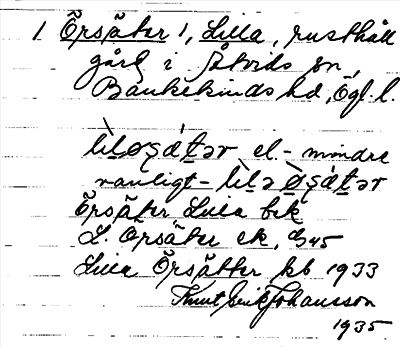 1 Örsäter 1, Lilla, rusthåll
gård i Åtvids sn,
Bankekinds hd, Ögl. l.
lìløşä́ṯər el. - mindre
vanligt - lìlə ø̀şä́ṯər
Örsäter Lilla bek
L. Örsäter ek,
Lilla Örsätter kb 1933
Knut Erik Johansson
1935